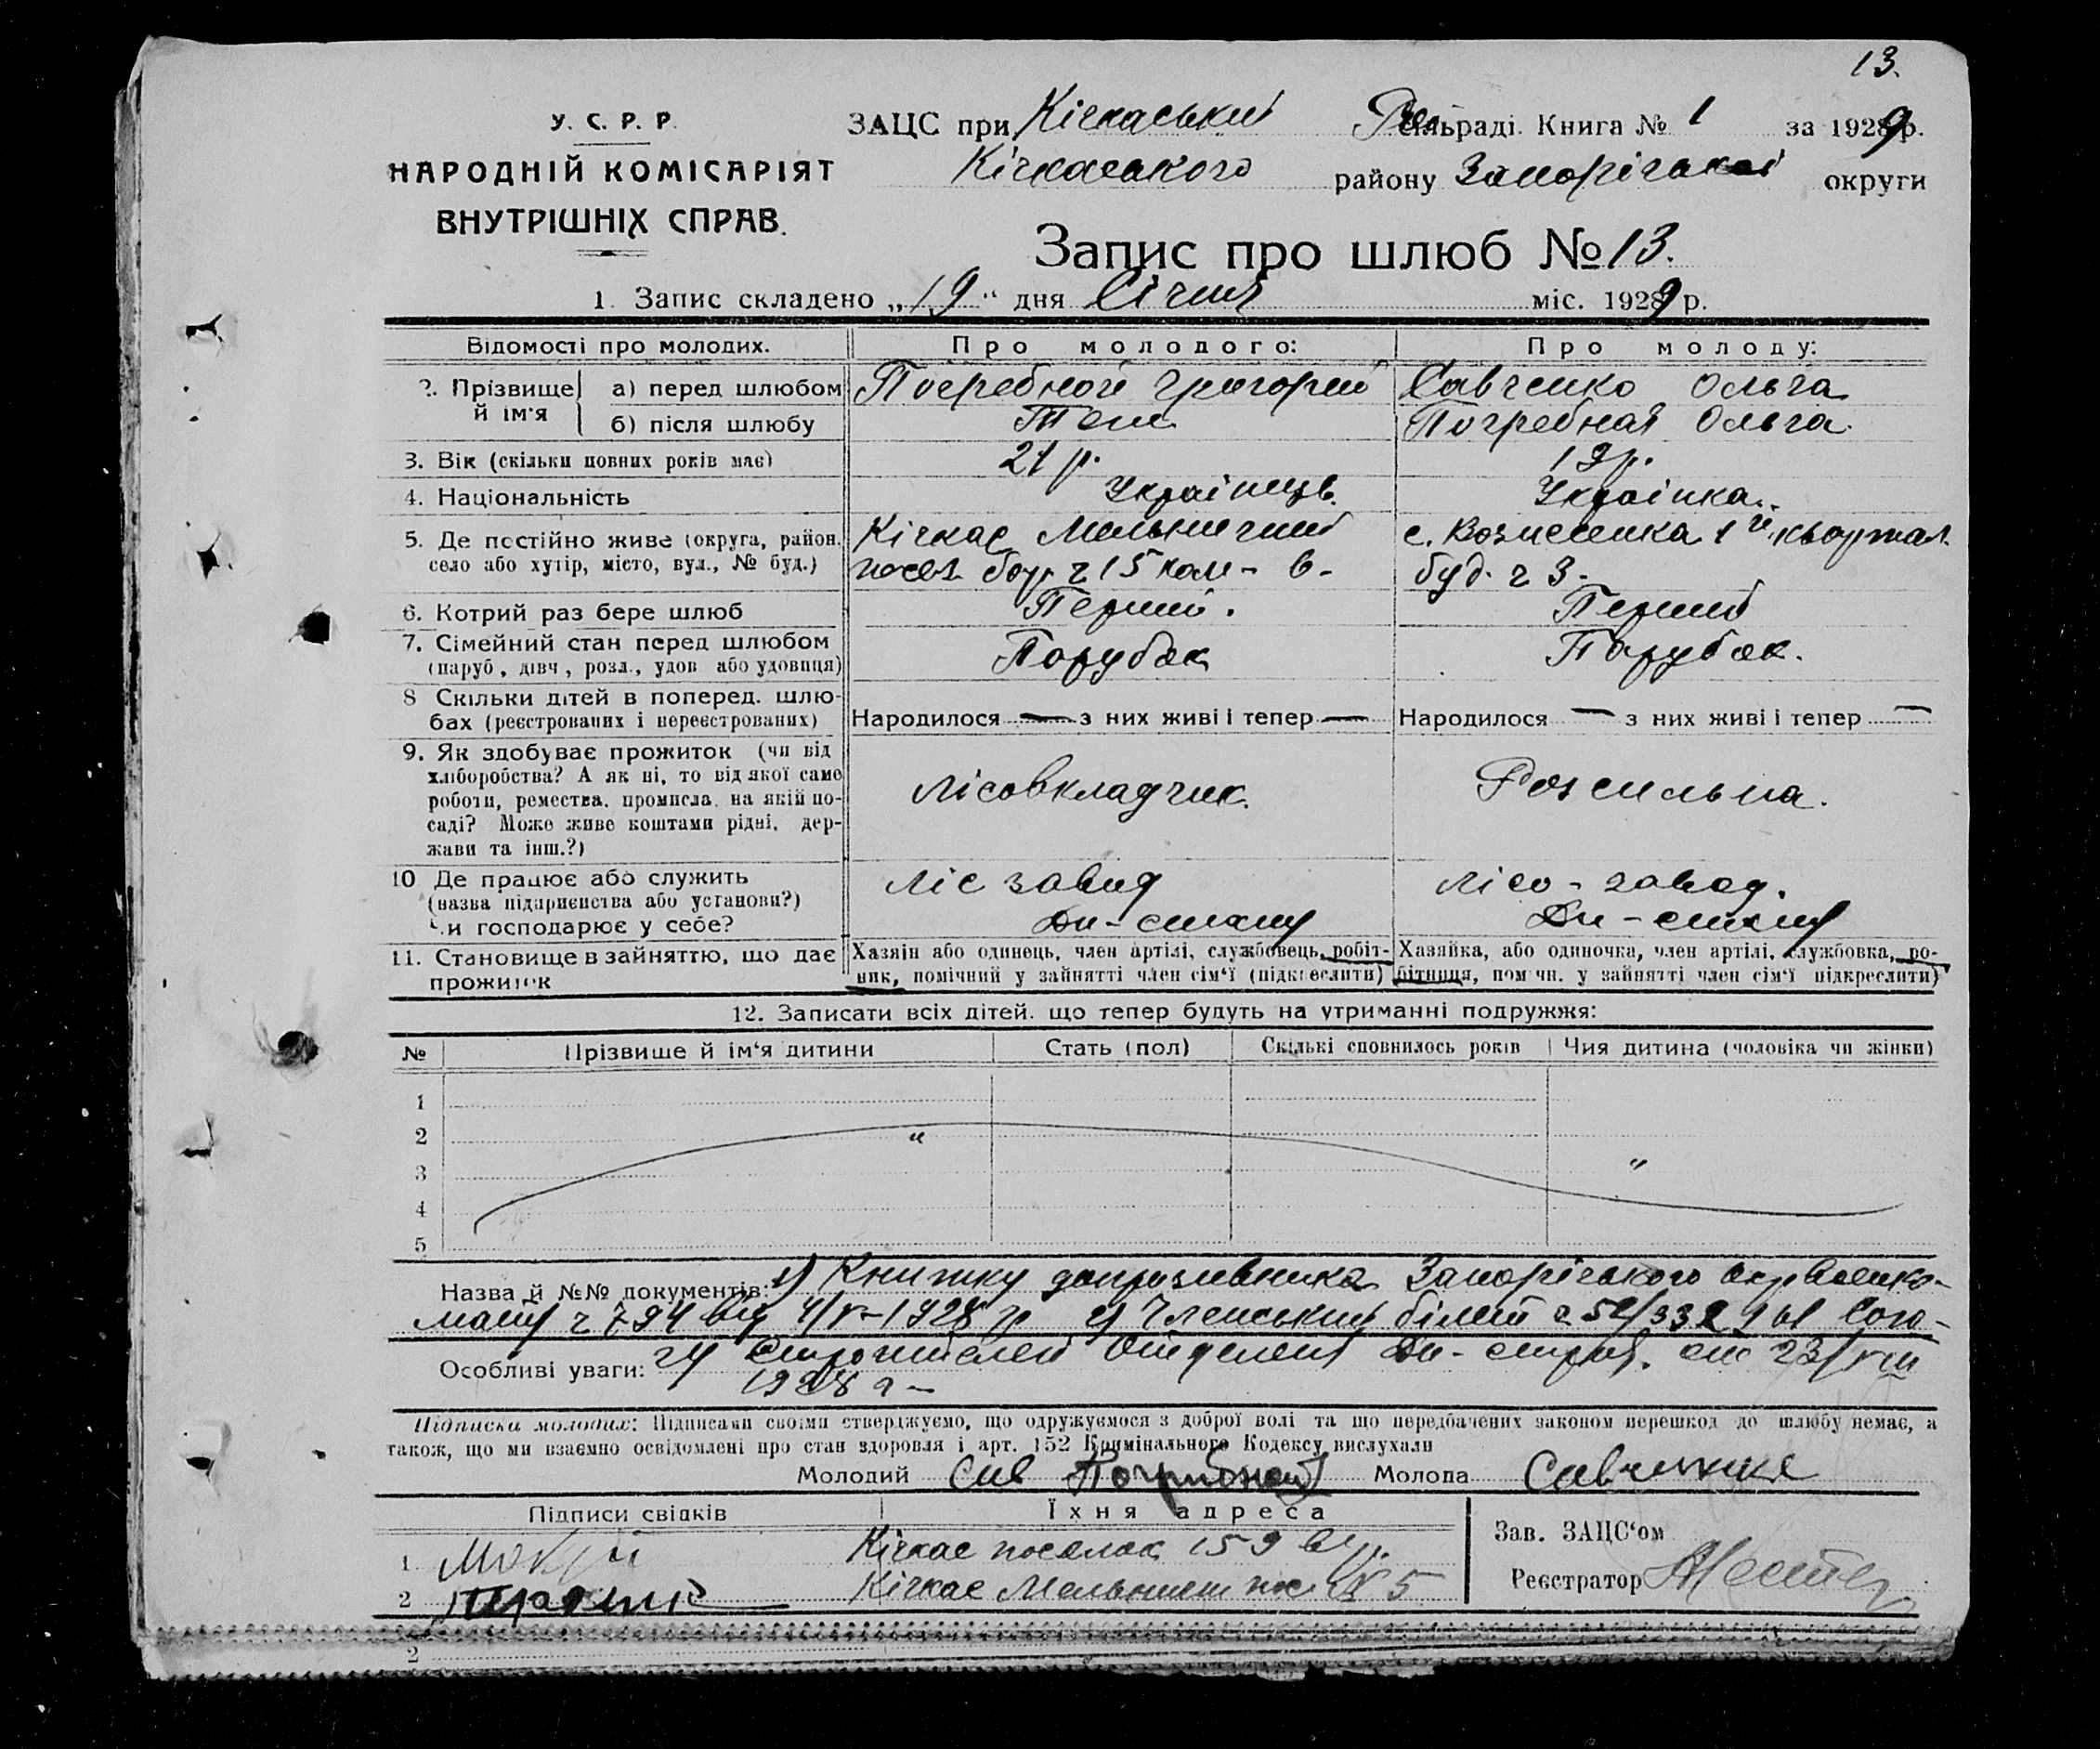 13.
У. С. Р. Р.
НАРОДНІЙ КОМІСАРІЯТ
ВНУТРІШНІХ СПРАВ.
ЗАЦС при Кічкаський Сільраді. Книга № 1 за 1929 р.
Кічкаського району Запорізької округи
Запис про шлюб № 13.
1. Запис складено „19“ дня Січня міс. 1929 р.
Відомості про молодих. Про молодого: Про молоду:
2. Прізвище й ім‘я а) перед шлюбом Погребной Григорий Савченко Ольга
б) після шлюбу Теж Погребная Ольга.
3. Вік (скільки повних років має) 21 р. 19 р.
4. Національність Українець. Українка.
5. Де постійно живе (округа, район, Кічкас Мельничний с. Вознесенка 1й квартал.
село або хутір, місто, вул., № буд.) посел. 15 6 буд. ч 3.
6. Котрий раз бере шлюб Перший. Перший
7. Сімейний стан перед шлюбом Парубок Парубок.
(паруб., дівч., розл., удов. або удовиця)
8. Скільки дітей в поперед. шлю-
бах (реєстрованих і нереєстрованих) Народилося — з них живі і тепер — Народилося — з них живі і тепер —
9. Як здобуває прожиток (чи від
хліборобства? А як ні, то від якої само
роботи, ремества, промисла, на якій по-
саді? Може живе коштами рідні, дер-
жави та інш.?)
Лісовкладчик. Розсильна.
10. Де працює або служить Ліс завод Лісо-завод.
(назва підприємства або установи?)
Чи господарює у себе?
11. Становище в зайняттю, що дає
прожиток
Хазяїн або одинець, член артілі, службовець, робіт-
ник, помічний у зайнятті член сім‘ї (підкреслити)
Хазяйка, або одиночка, член артілі, службовка, ро-
бітниця, пом чн. у зайнятті член сім‘ї підкреслити)
12. Записати всіх дітей, що тепер будуть на утриманні подружжя:
№ Прізвище й ім‘я дитини Стать (пол) Скількі сповнилось років Чия дитина (чоловіка чи жінки)
1
2 "
3 "
4
5
Назва й №№ документів: 1) Книжку допризивника Запорізького
ч 794 від 4/V-1928 р 2) Членський білет
Особливі уваги: Строителей
1928 г -
Підписки молодих: Підписами своїми стверджуємо, що одружуємося з доброї волі та що передбачених законом перешкод до шлюбу немає, а
також, що ми взаємно освідомлені про стан здоровля і арт. 152 Кримінального Кодексу вислухали
Молодий Сав Погрибной Молода Савченко
Підписи свідків Їхня адреса
1 Мокрій Кічкас поселок 159
2 Кічкас Мельничн пос. № 5
Зав. ЗАЦС‘ом
Реєстратор
2